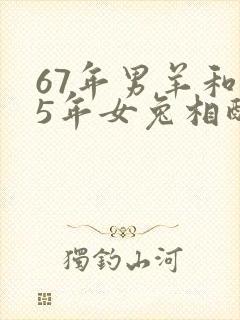 67年男羊和
5年女兔相配
獨釣山河